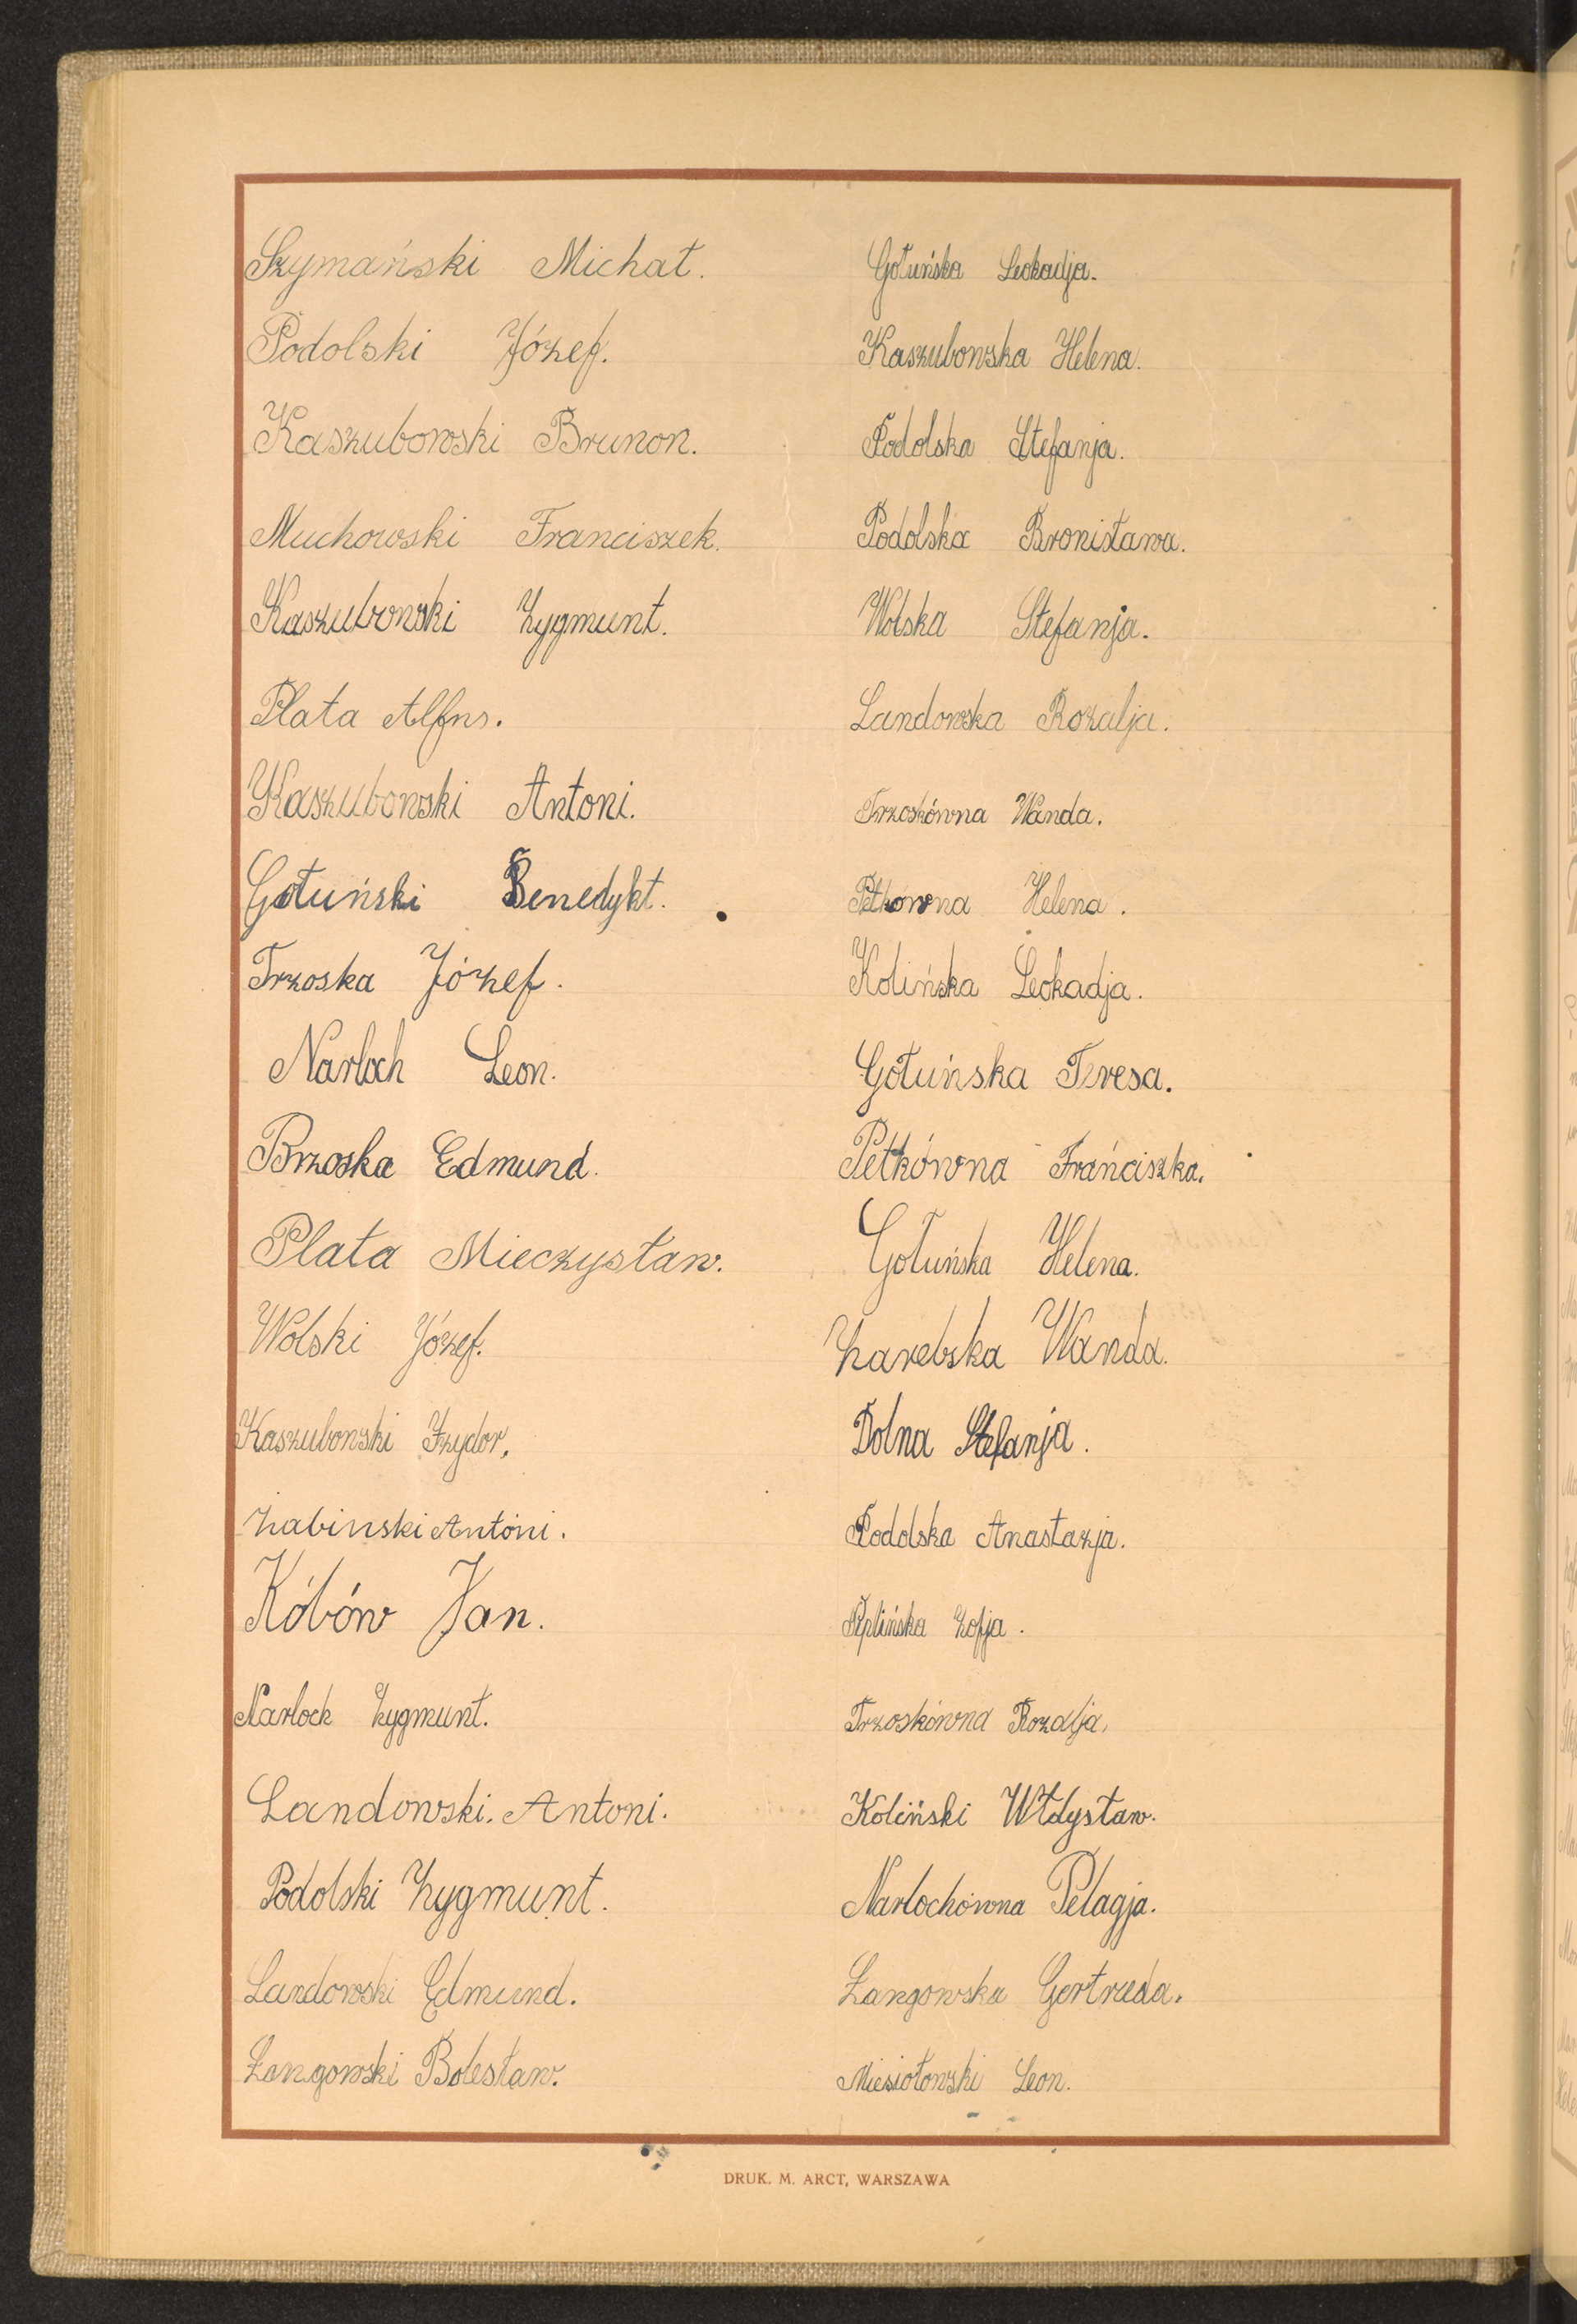 Szymański Michał.
Podolski Józef.
Kaszubowski Brunon.
Muchowski Franciszek.
Kaszubowski Zygmunt.
Plata Alfns.
Kaszubowski Antoni.
Gołuński Benedykt.
Trzoska Józef.
Narloch Leon.
Brzoska Edmund.
Plata Mieczysław.
Wolski Józef.
Kaszubowski Izydor.
Żabinski Antoni.
Kóbów Jan.
Narloch Zygmunt.
Landowski. Antoni.
Podolski Zygmunt.
Landowski Edmund.
Łangowski Bolesław.
Gołuńska Leokadja.
Kaszubowska Helena.
Podolska Stefanja.
Podolska Bronisława.
Wolska Stefanja.
Landowska Rozalja.
Trzoskówna Wanda.
Petkówna Helena.
Kolińska Leokadja.
Gołuńska Teresa.
Petkówna Franciszka.
Gołuńska Helena.
Zarebska Wanda.
Dolna Stefanja.
Podolska Anastazja.
Peplińska Zofja.
Trzoskówna Rozalja.
Koliński Włdysław.
Narlochówna Pelagja.
Łangowska Gertruda.
Miesiołowski Leon.
DRUK. M. ARCT, WARSZAWA